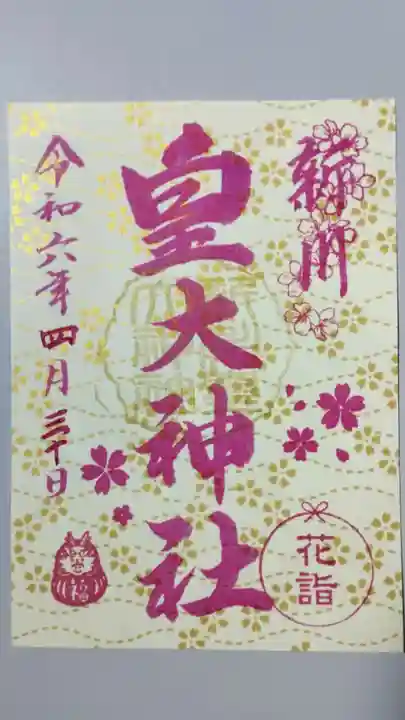 弥月
皇大神社
令和六年四月三十日
花詣
福